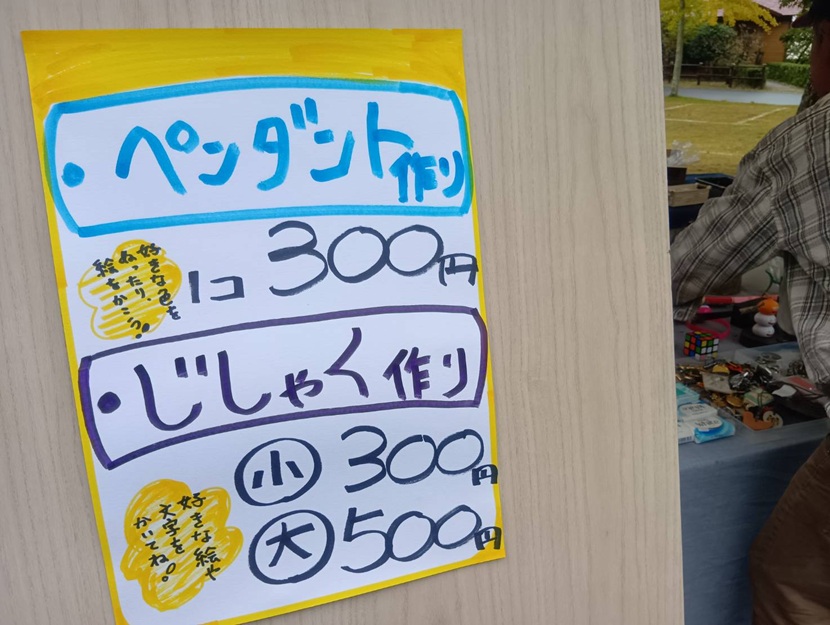 ・ペンダント作り
1コ 300円
好きな色を
ぬったり、
絵をかこう!
・じしゃく作り
小 300円
大 500円
好きな絵や
文字を
かいてね!